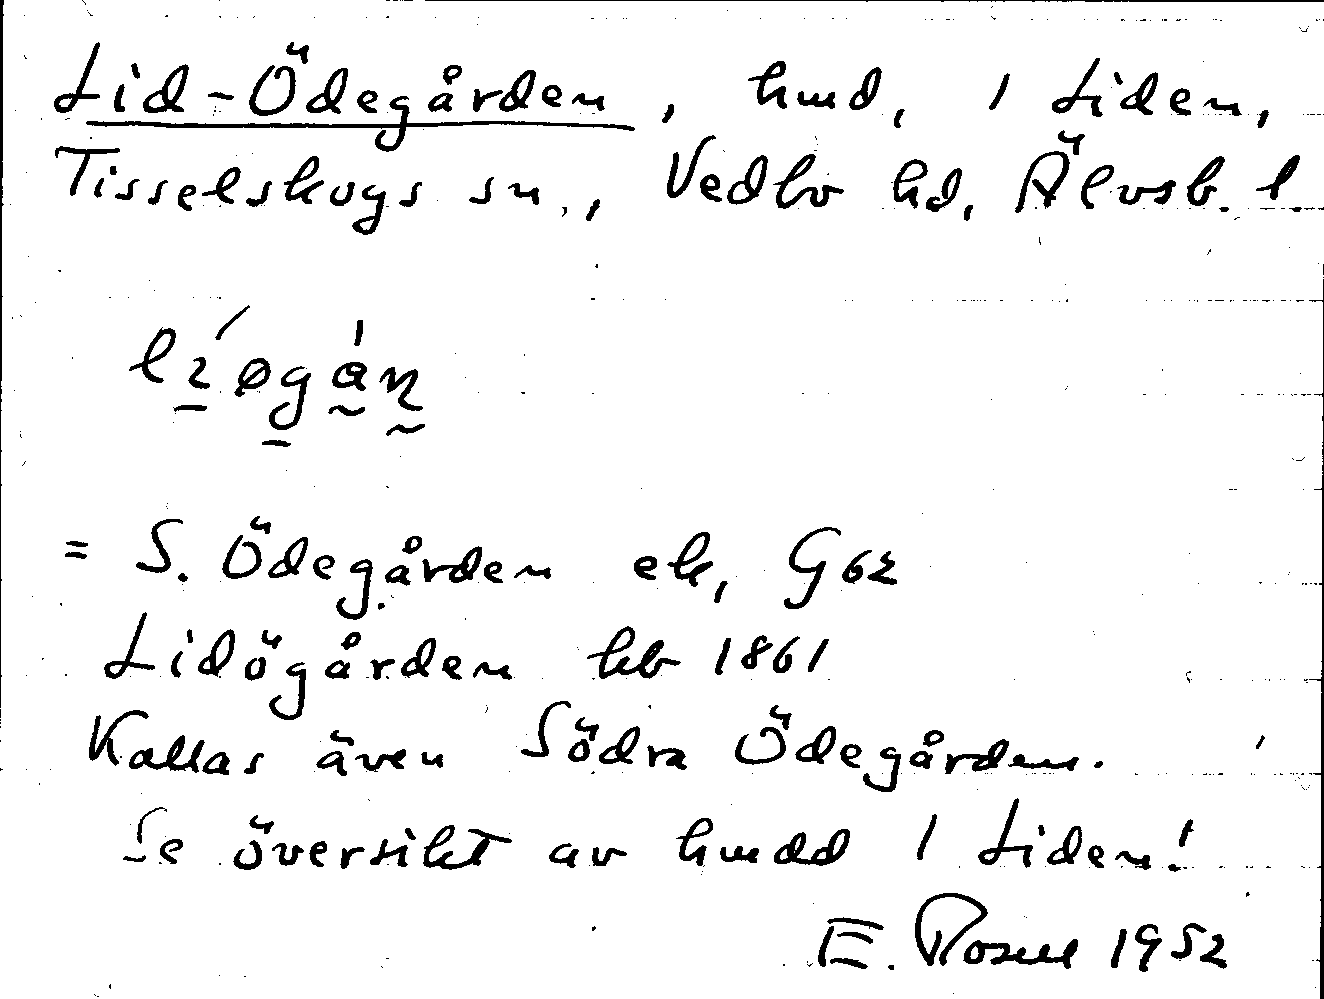 Lid-Ödegården, hmd, 1 Liden,
Tisselskogs sn., Vedbo hd, Älvsb. l.
= S. Ödegården ek, G 62
Lidögården kb 1861
Kallas även Södra Ödegården.
Se översikt av hmdd 1 Liden!
E. Rosell 1952